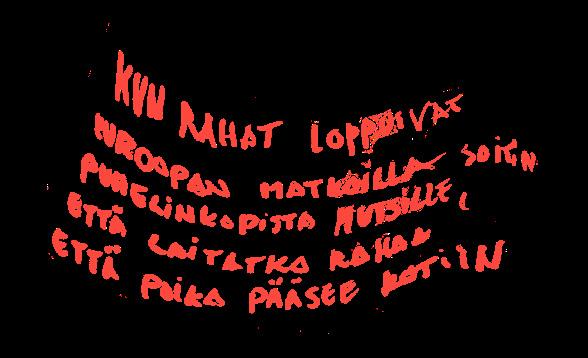 KUN RAHAT LOPPUIVAT
EUROOPAN MATKOILLA SOITIN
PUHELINKOPISTA MUTSILLE,
ETTÄ LAITATKO RAHAA,
ETTÄ POIKA PÄÄSEE KOTIIN